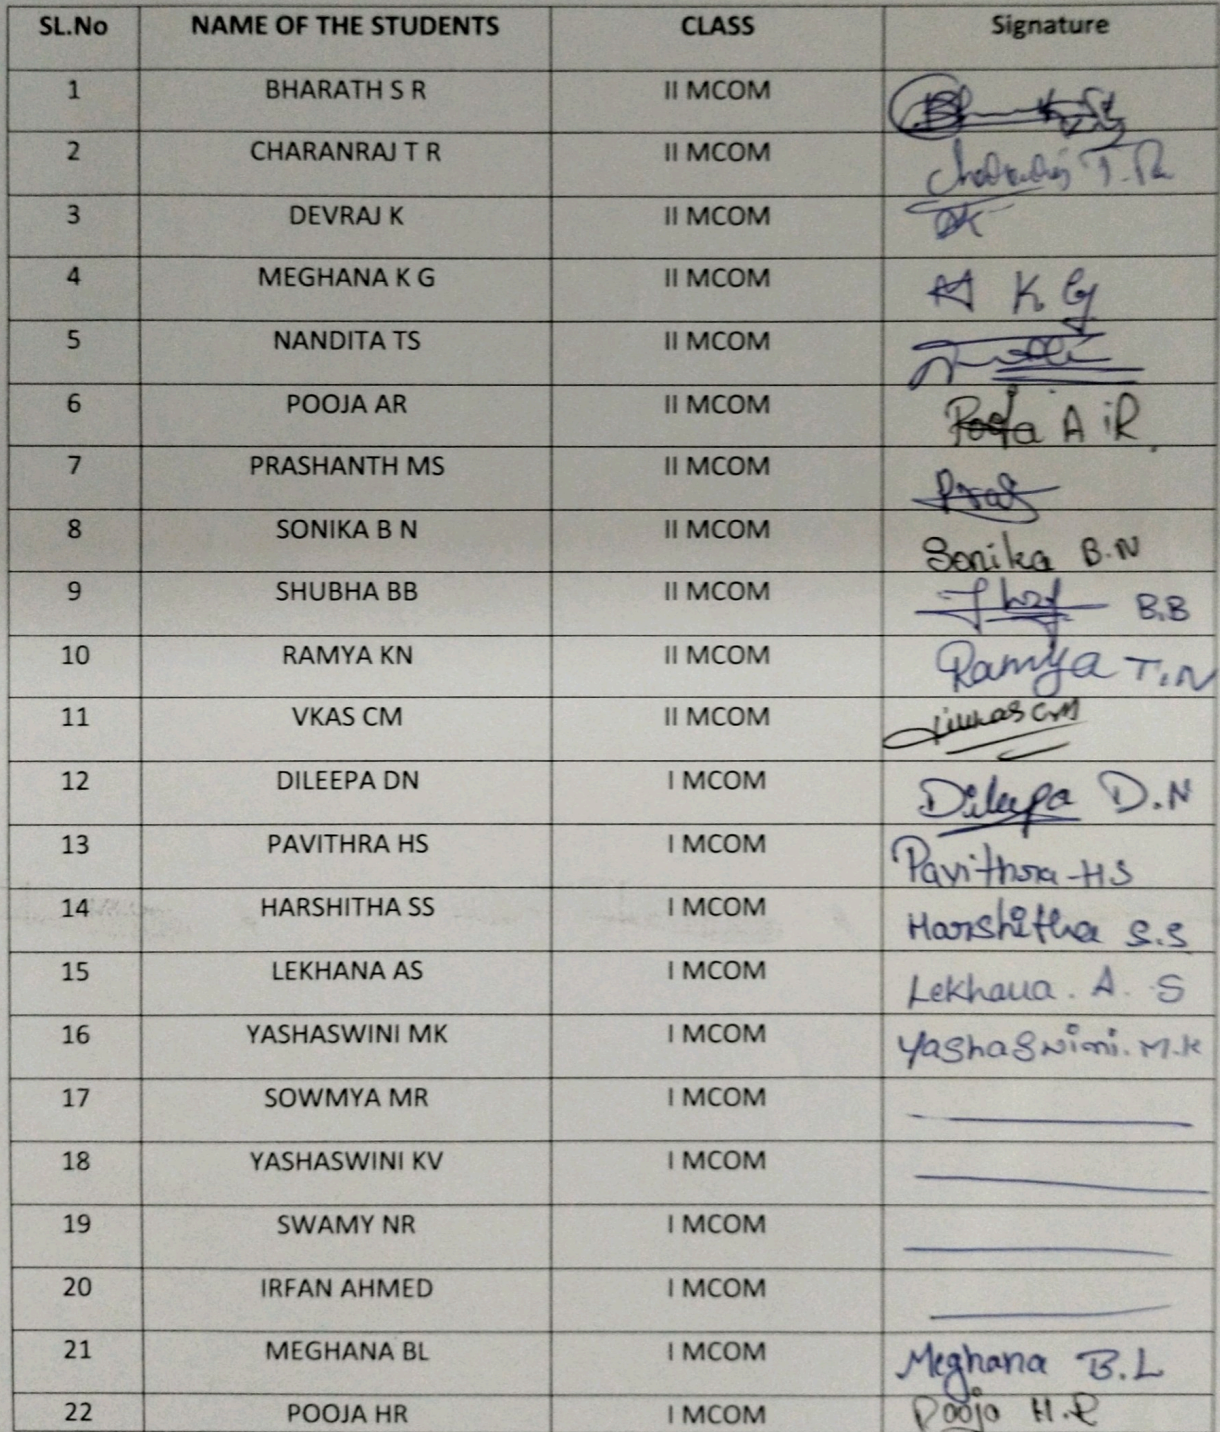 SL.No NAME OF THE STUDENTS CLASS Signature
1 BHARATH S R II MCOM
2 CHARANRAJ T R II MCOM T.R
3 DEVRAJ K II MCOM
4 MEGHANA K G II MCOM K G
5 NANDITA TS II MCOM
6 POOJA AR II MCOM Pooja A R
7 PRASHANTH MS II MCOM
8 SONIKA B N II MCOM Sonika B.N
9 SHUBHA BB II MCOM B.B
10 RAMYA KN II MCOM Ramya T.N
11 VKAS CM II MCOM
12 DILEEPA DN I MCOM Dileepa D.N
13 PAVITHRA HS I MCOM Pavithra HS
14 HARSHITHA SS I MCOM Harshitha S.S
15 LEKHANA AS I MCOM Lekhana. A. S
16 YASHASWINI MK I MCOM Yashaswini. M.K
17 SOWMYA MR I MCOM
18 YASHASWINI KV I MCOM
19 SWAMY NR I MCOM
20 IRFAN AHMED I MCOM
21 MEGHANA BL I MCOM Meghana B.L
22 POOJA HR I MCOM Pooja H.R